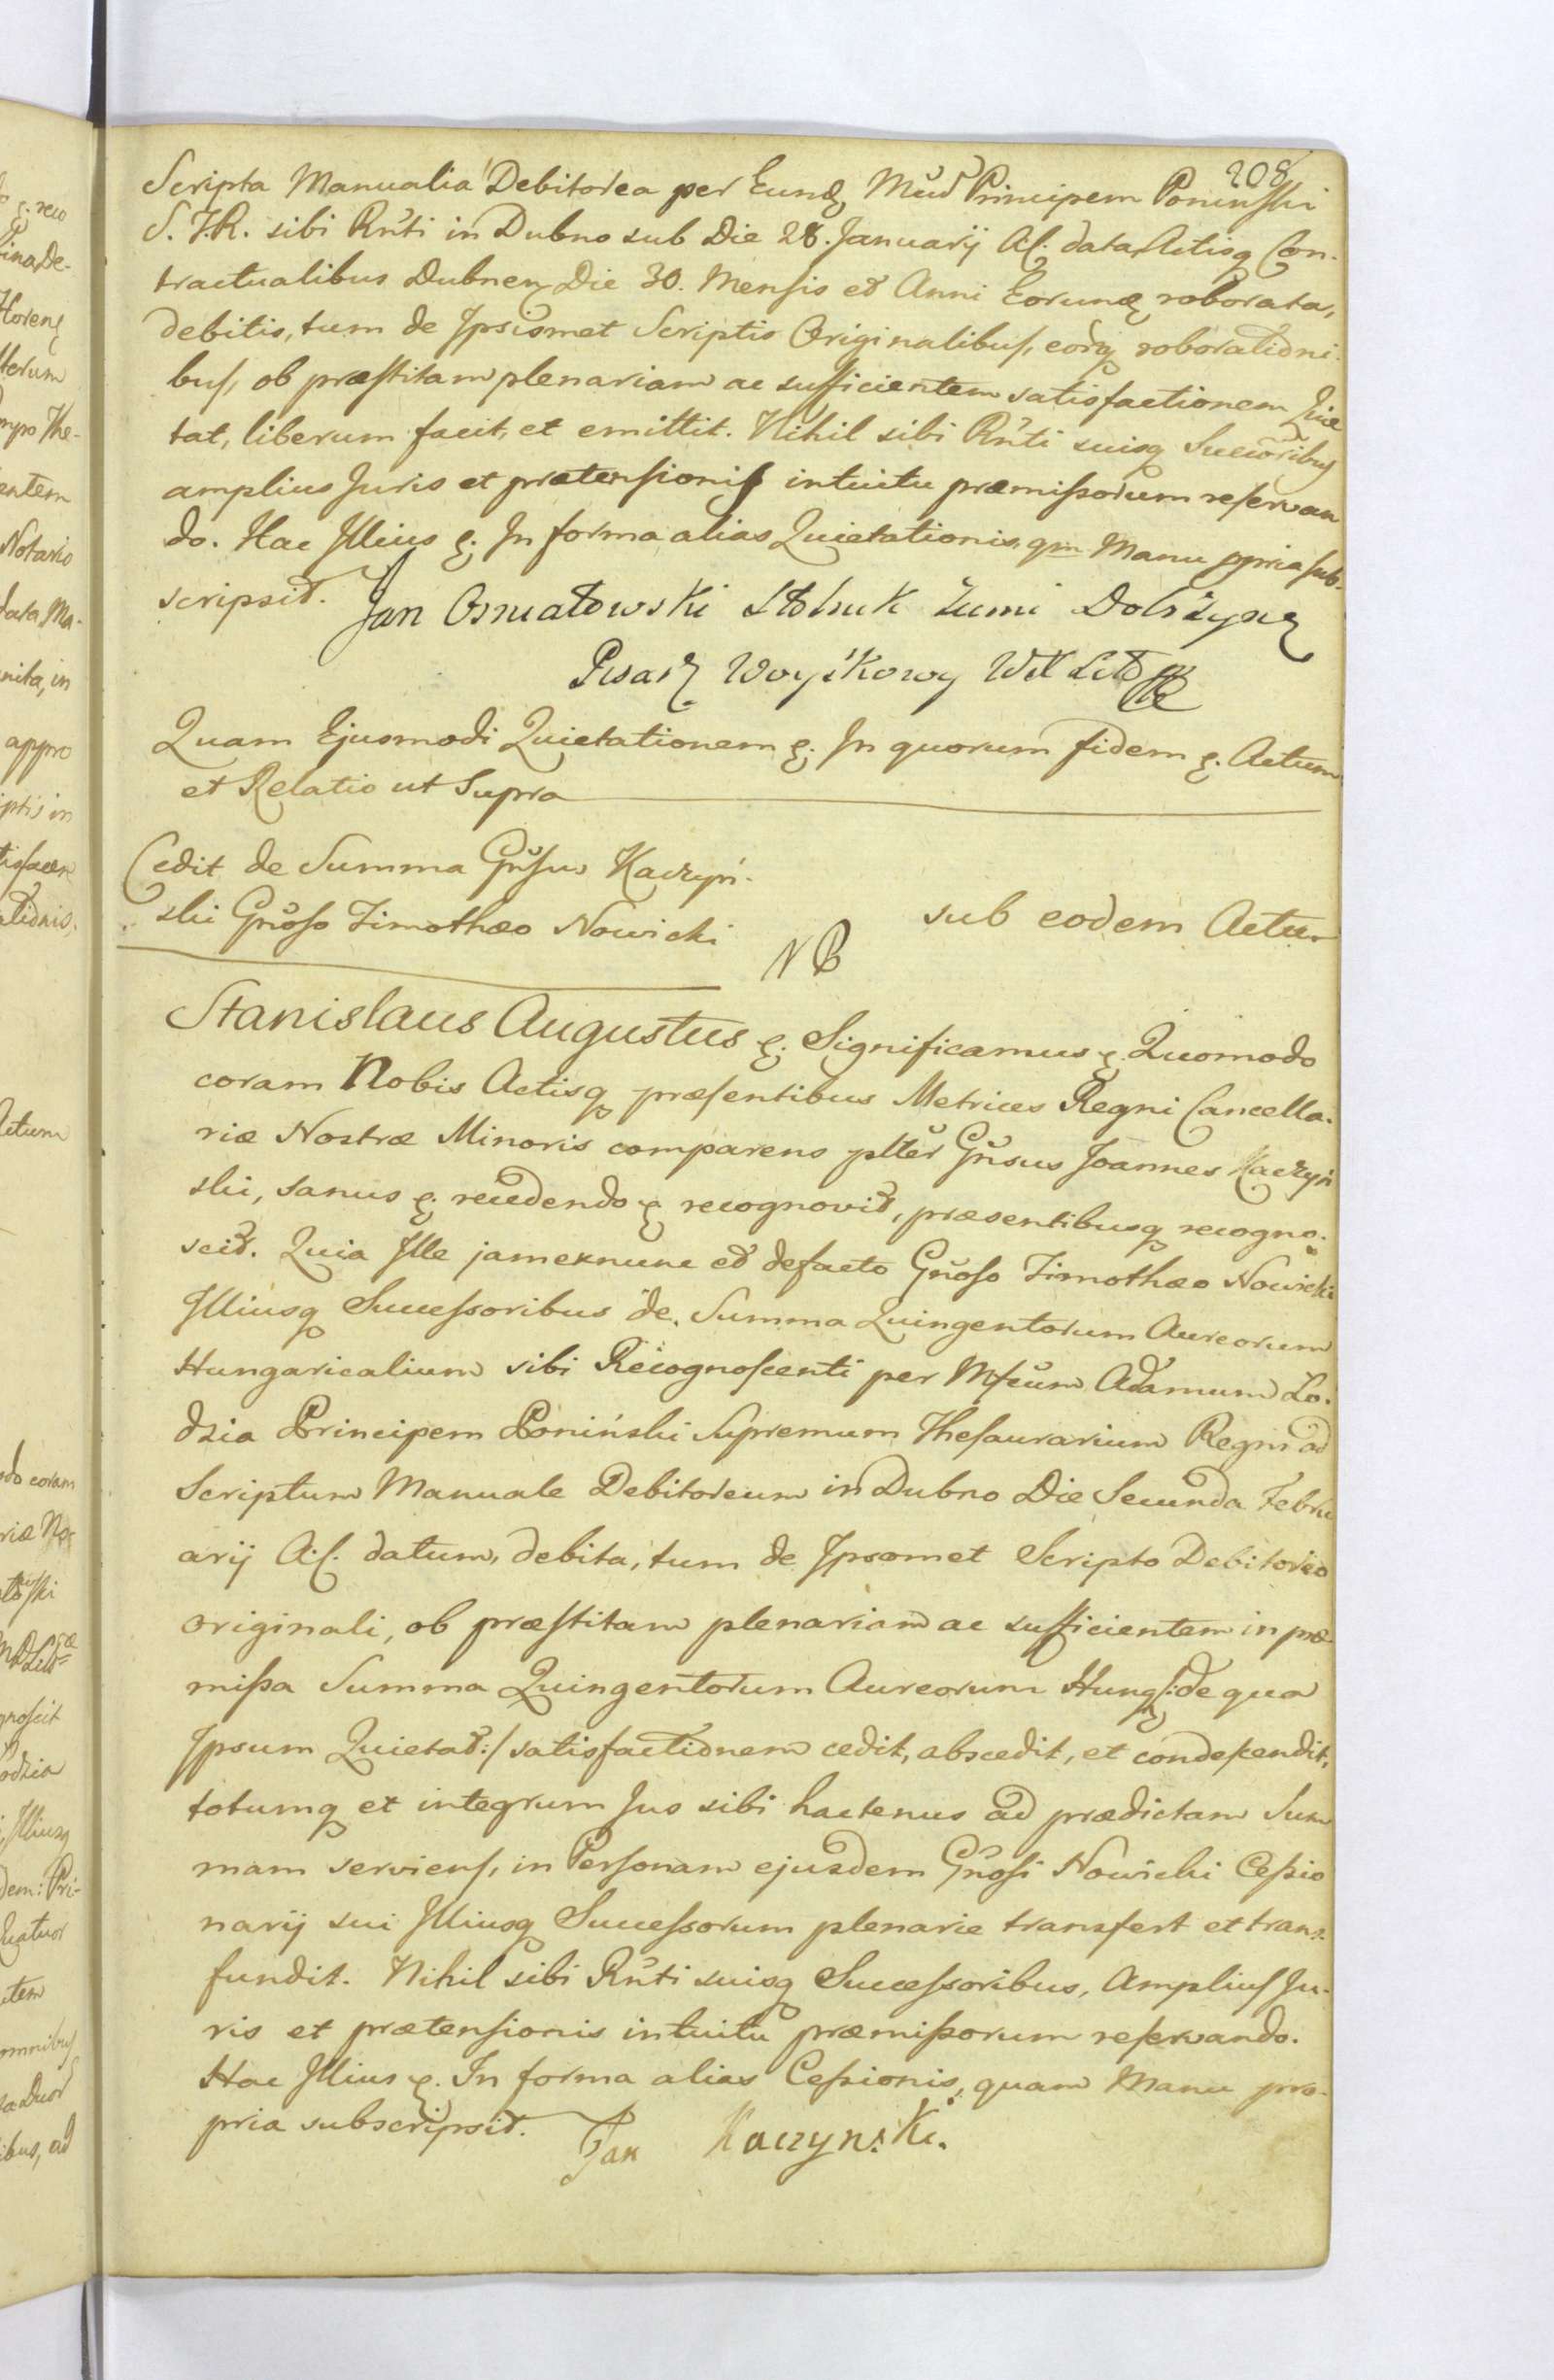 208
Scripta Manualia Debitorea per Eund, Mud Principem Poninski
S. T. R. sibi Rñti in Dubno sub Die 28. Januarij A.C. data, Actisq Con-
tractualibus Dubnen Die 30. Mensis et Anni Eorund roborata,
debitis, tum de Ipsismet Scriptis Originalibus, eorq roborationi-
bus, ob præstitam plenariam ac sufficientem satisfactionem Quie
tat, liberum facit, et emittit. Nihil sibi Rñti suisq Succoribus
amplius Juris et prætensionis intuitu præmissorum reservan
do. Hac Illius &. In forma alias Quietationis, qm Manu ppria sub-
scripsit.
Jan Osmiałowski Stolnik Ziemi Dobrzyn
Pisarz Woyskowy W X Litt
Quam Ejusmodi Quietationem &. In quorum fidem &. Actum
et Relatio ut Supra
Cedit de Summa Gñsus Kaczyń-
ski Gñoso Timothæo Nowicki
sub eodem Actu.
NB
Stanislaus Augustus &. Significamus &. Quomodo
coram Nobis Actisq præsentibus Metrices Regni Cancella-
riæ Nostræ Minoris comparens plter Gñsus Joannes Kaczyń
ski, sanus &. recedendo & recognovit, præsentibusq recogno-
scit. Quia Ille jamexnunc et defacto Gñoso Timothæo Nowicki
Illiusq Successoribus de, Summa Quingentorum Aureorum
Hungaricalium sibi Recognoscenti per Mfcum Adamum Lo-
dzia Principem Poniński Supremum Thesaurarium Regni ad
Scriptum Manuale Debitoreum in Dubno Die Secunda Febru
arij A.C. datum, debita, tum de Ipsomet Scripto Debitoreo
originali, ob præstitam plenariam ac sufficientem in præ-
missa Summa Quingentorum Aureorum Hung /:de qua
Ipsum Quietat:/ satisfactionem cedit, abscedit, et condescendit,
totumq et integrum Jus sibi hactenus ad prædictam Sum
mam serviens, in Personam ejusdem Gñosi Nowicki Cessio
narij sui Illiusq Successorum plenarie transfert et trans-
fundit. Nihil sibi Rñti suisq Successoribus, Amplius Ju-
ris et prætensionis intuitu præmissorum reservando.
Hac Illius &. In forma alias Cessionis, quam Manu pro-
pria subscripsit.
Jan Kaczynski.